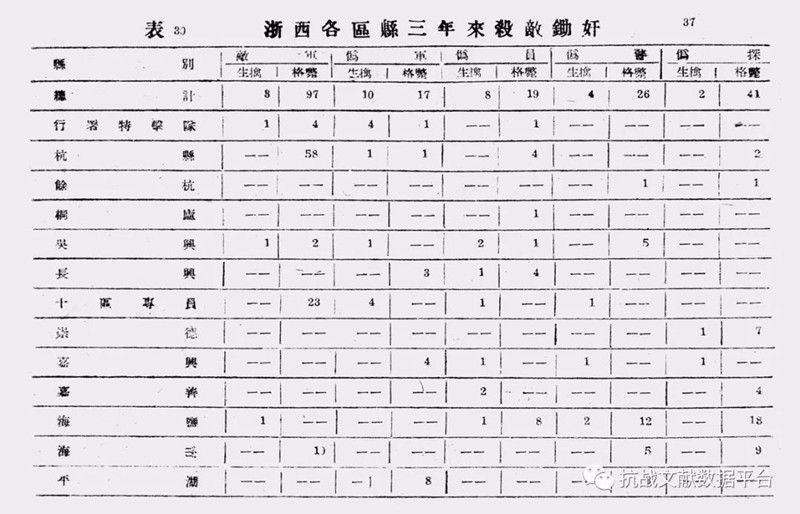 表 30 浙西各區縣三年來殺敵鋤奸 37
縣別 敵軍 僞軍 僞員 僞警 僞探
生擒 格斃 生擒 格斃 生擒 格斃 生擒 格斃 生擒 格斃
總計 3 97 10 17 8 19 4 26 2 41
行署特擊隊 1 4 4 1 —— 1 —— —— —— ——
杭縣 —— 58 1 1 —— 4 —— —— —— 2
餘杭 —— —— —— —— —— —— —— 1 —— 1
桐廬 —— —— —— —— —— 1 —— —— —— ——
吳興 1 2 1 —— 2 1 —— 5 —— ——
長興 —— —— —— 3 1 4 —— —— —— ——
十區專員 —— 23 4 —— 1 —— 1 —— —— ——
崇德 —— —— —— —— —— —— —— —— 1 7
嘉興 —— —— —— 4 1 —— 1 —— 1 ——
嘉善 —— —— —— —— 2 —— —— —— —— 4
海鹽 1 —— —— —— 1 8 2 12 —— 18
海 —— 10 —— —— —— —— —— 5 —— 9
平湖 —— —— —— 8 —— ——
抗战文献数据平台